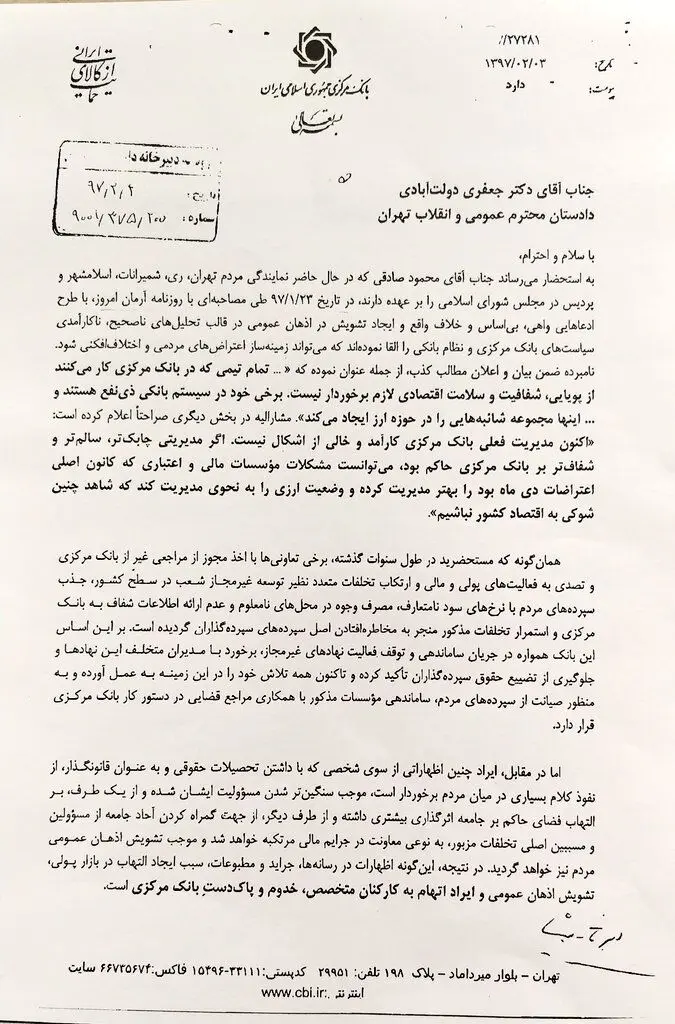 ۲۷۲۸۱//
تاریخ: ۱۳۹۷/۰۲/۰۳
پیوست: دارد
بانک مرکزی جمهوری اسلامی ایران
بسمه تعالی
حمایت از کالای ایرانی
دبیرخانه
تاریخ: ۹۷/۲/۴
شماره: ۹۰۰۱/۴۷۵/۲۰۰
جناب آقای دکتر جعفری دولت‌آبادی
دادستان محترم عمومی و انقلاب تهران
با سلام و احترام،
به استحضار می‌رساند جناب آقای محمود صادقی که در حال حاضر نمایندگی مردم تهران، ری، شمیرانات، اسلامشهر و
پردیس در مجلس شورای اسلامی را بر عهده دارند، در تاریخ ۹۷/۱/۲۳ طی مصاحبه‌ای با روزنامه آرمان امروز، با طرح
ادعاهایی واهی، بی‌اساس و خلاف واقع و ایجاد تشویش در اذهان عمومی در قالب تحلیل‌های ناصحیح، ناکارآمدی
سیاست‌های بانک مرکزی و نظام بانکی را القا نموده‌اند که می‌تواند زمینه‌ساز اعتراض‌های مردمی و اختلاف‌افکنی شود.
نامبرده ضمن بیان و اعلان مطالب کذب، از جمله عنوان نموده که « ... تمام تیمی که در بانک مرکزی کار می‌کنند
از پویایی، شفافیت و سلامت اقتصادی لازم برخوردار نیست. برخی خود در سیستم بانکی ذی‌نفع هستند و
... اینها مجموعه شائبه‌هایی را در حوزه ارز ایجاد می‌کند». مشارالیه در بخش دیگری صراحتاً اعلام کرده است:
«اکنون مدیریت فعلی بانک مرکزی کارآمد و خالی از اشکال نیست. اگر مدیریتی چابک‌تر، سالم‌تر و
شفاف‌تر بر بانک مرکزی حاکم بود، می‌توانست مشکلات مؤسسات مالی و اعتباری که کانون اصلی
اعتراضات دی ماه بود را بهتر مدیریت کرده و وضعیت ارزی را به نحوی مدیریت کند که شاهد چنین
شوکی به اقتصاد کشور نباشیم».
همان‌گونه که مستحضرید در طول سنوات گذشته، برخی تعاونی‌ها با اخذ مجوز از مراجعی غیر از بانک مرکزی
و تصدی به فعالیت‌های پولی و مالی و ارتکاب تخلفات متعدد نظیر توسعه غیرمجاز شعب در سطح کشور، جذب
سپرده‌های مردم با نرخ‌های سود نامتعارف، مصرف وجوه در محل‌های نامعلوم و عدم ارائه اطلاعات شفاف به بانک
مرکزی و استمرار تخلفات مذکور منجر به مخاطره‌افتادن اصل سپرده‌های سپرده‌گذاران گردیده است. بر این اساس
این بانک همواره در جریان ساماندهی و توقف فعالیت نهادهای غیرمجاز، برخورد با مدیران متخلف این نهادها و
جلوگیری از تضییع حقوق سپرده‌گذاران تأکید کرده و تاکنون همه تلاش خود را در این زمینه به عمل آورده و به
منظور صیانت از سپرده‌های مردم، ساماندهی مؤسسات مذکور با همکاری مراجع قضایی در دستور کار بانک مرکزی
قرار دارد.
اما در مقابل، ایراد چنین اظهاراتی از سوی شخصی که با داشتن تحصیلات حقوقی و به عنوان قانونگذار، از
نفوذ کلام بسیاری در میان مردم برخوردار است، موجب سنگین‌تر شدن مسؤولیت ایشان شده و از یک طرف، بر
التهاب فضای حاکم بر جامعه اثرگذاری بیشتری داشته و از طرف دیگر، از جهت گمراه کردن آحاد جامعه از مسؤولین
و مسببین اصلی تخلفات مزبور، به نوعی معاونت در جرایم مالی مرتکبه خواهد شد و موجب تشویش اذهان عمومی
مردم نیز خواهد گردید. در نتیجه، این‌گونه اظهارات در رسانه‌ها، جراید و مطبوعات، سبب ایجاد التهاب در بازار پولی،
تشویش اذهان عمومی و ایراد اتهام به کارکنان متخصص، خدوم و پاک‌دستِ بانک مرکزی است.
تهران - بلوار میرداماد - پلاک ۱۹۸ تلفن: ۲۹۹۵۱ کدپستی: ۳۳۱۱۱-۱۵۴۹۶ فاکس: ۶۶۷۳۵۶۷۴ سایت
اینترنتی: www.cbi.ir